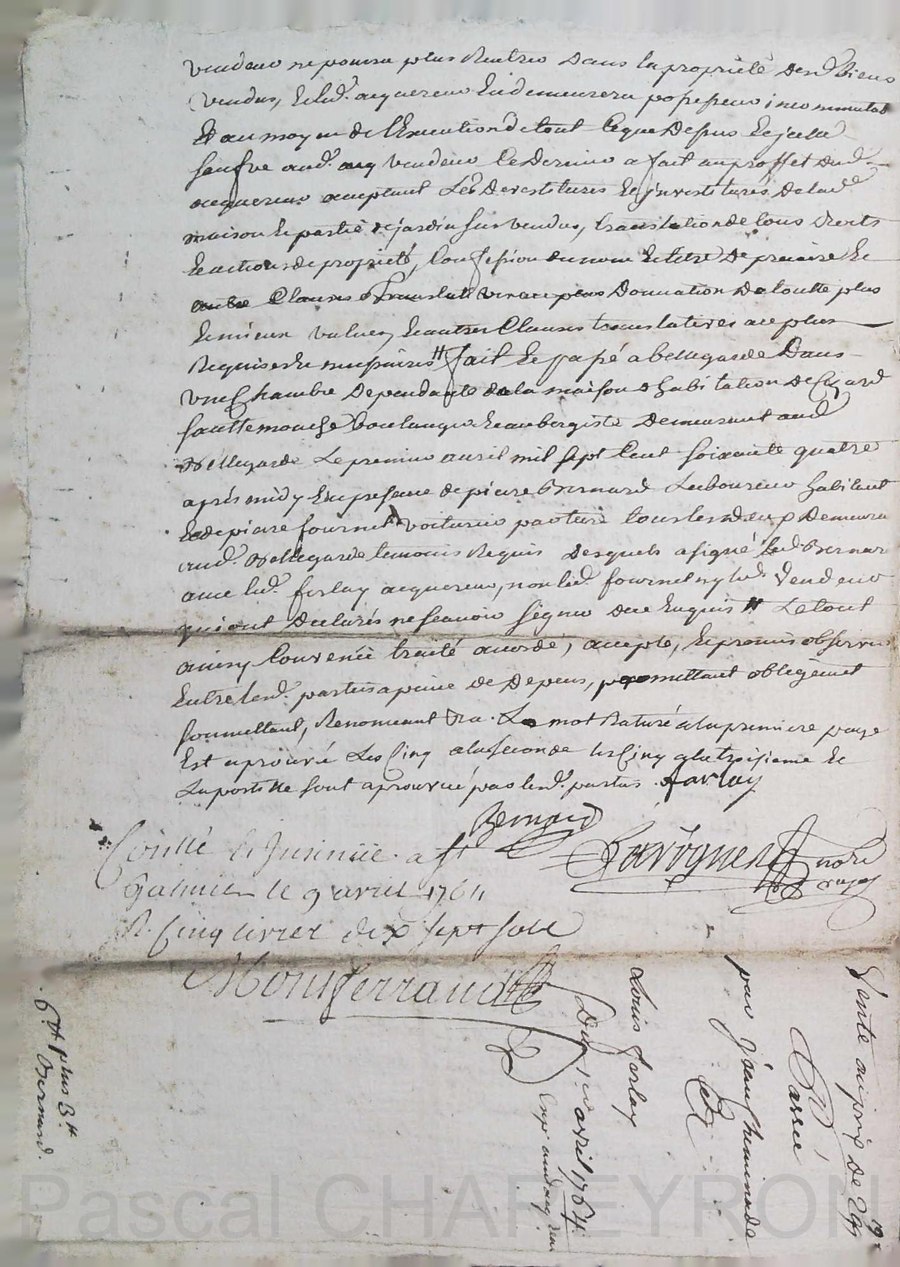 vendeur ne poura plus Rentrer Dans la propriété desd. Biens
vendus, Et led. acquereur En demeurera possesseur incommutab
Et au moyen de l'Execution de tout ce que Dessus
aud. vendeur ce Dernier a fait au proffet dud.
acquereur acceptant Les Devestitures Et investitures De lad.
maison Et partie de jardin sus vendus, translation de tous Droits
Et actions de propriété, Confession du nom Et titre De precaire Et
Clauses Donnation De toutte plus
Et mieux value, Et autres Clauses translatives au plus
Requises Et necessaires # fait Et passé a bellegarde Dans
une Chambre Dependante de la maison D'habitation De
Sauttemouche Boulanger Et aubergiste Demeurant aud.
Bellegarde Le premier avril mil sept Cent soixante quatre
après midy En presence de pierre Bernard Laboureur habitant
Et de pierre fournel voiturier par terre tous les Deux Demeura
aud. Bellegarde temoins Requis Desquels a signé led. Bernar
avec led. forlay acquereur, non led. fournel ny led. Vendeur
qui ont Declarés ne scavoir signer de ce Enquis # Le tout
ainsy Convenü traité accordé, accepté, Et promis observer
Entre lesd. parties a peine de Depens, promettant obligeant
soumettant, Renonceant &a. Le mot Raturé a la premiere page
Est aprouvé Les Cinq a la seconde les Cinq a la troisieme Et
La postille sont aprouvué par lesd. parties. farlay
Bernard
nore
royal
Conllé et Insinüée a St
Galmier le 9 avril 1764
R. Cinq livres dix sept sols
Montferrand
Vente au prix de
Passée
par Jean Cheminade
à
Louis forlay
Du 1er avril 1764
6tt plus 3tt
Bernard.
Pascal CHAPEYRON